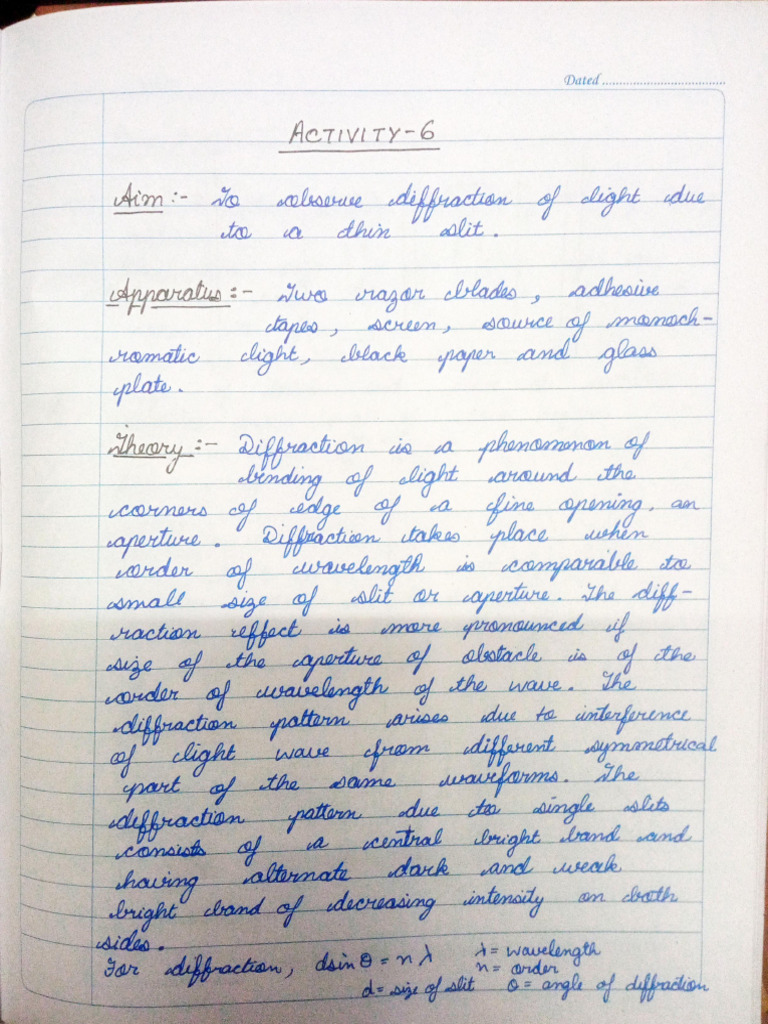 Dated
ACTIVITY-6
Aim :- To observe diffraction of light due
to a thin slit.
Apparatus :- Two razor blades, adhesive
tapes, screen, source of monoch-
romatic light, black paper and glass
plate.
Theory :- Diffraction is a phenomenon of
bending of light around the
corners of edge of a fine opening, an
aperture. Diffraction takes place when
order of wavelength is comparable to
small size of slit or aperture. The diff-
raction effect is more pronounced if
size of the aperture of obstacle is of the
order of wavelength of the wave. The
diffraction pattern arises due to interference
of light wave from different symmetrical
part of the same wavforms. The
diffraction pattern due to single slits
consists of a central bright band and
having alternate dark and weak
bright band of decreasing intensity on both
sides.
For diffraction, dsin θ = n λ λ = wavelength
n = order
d = size of slit θ = angle of diffraction